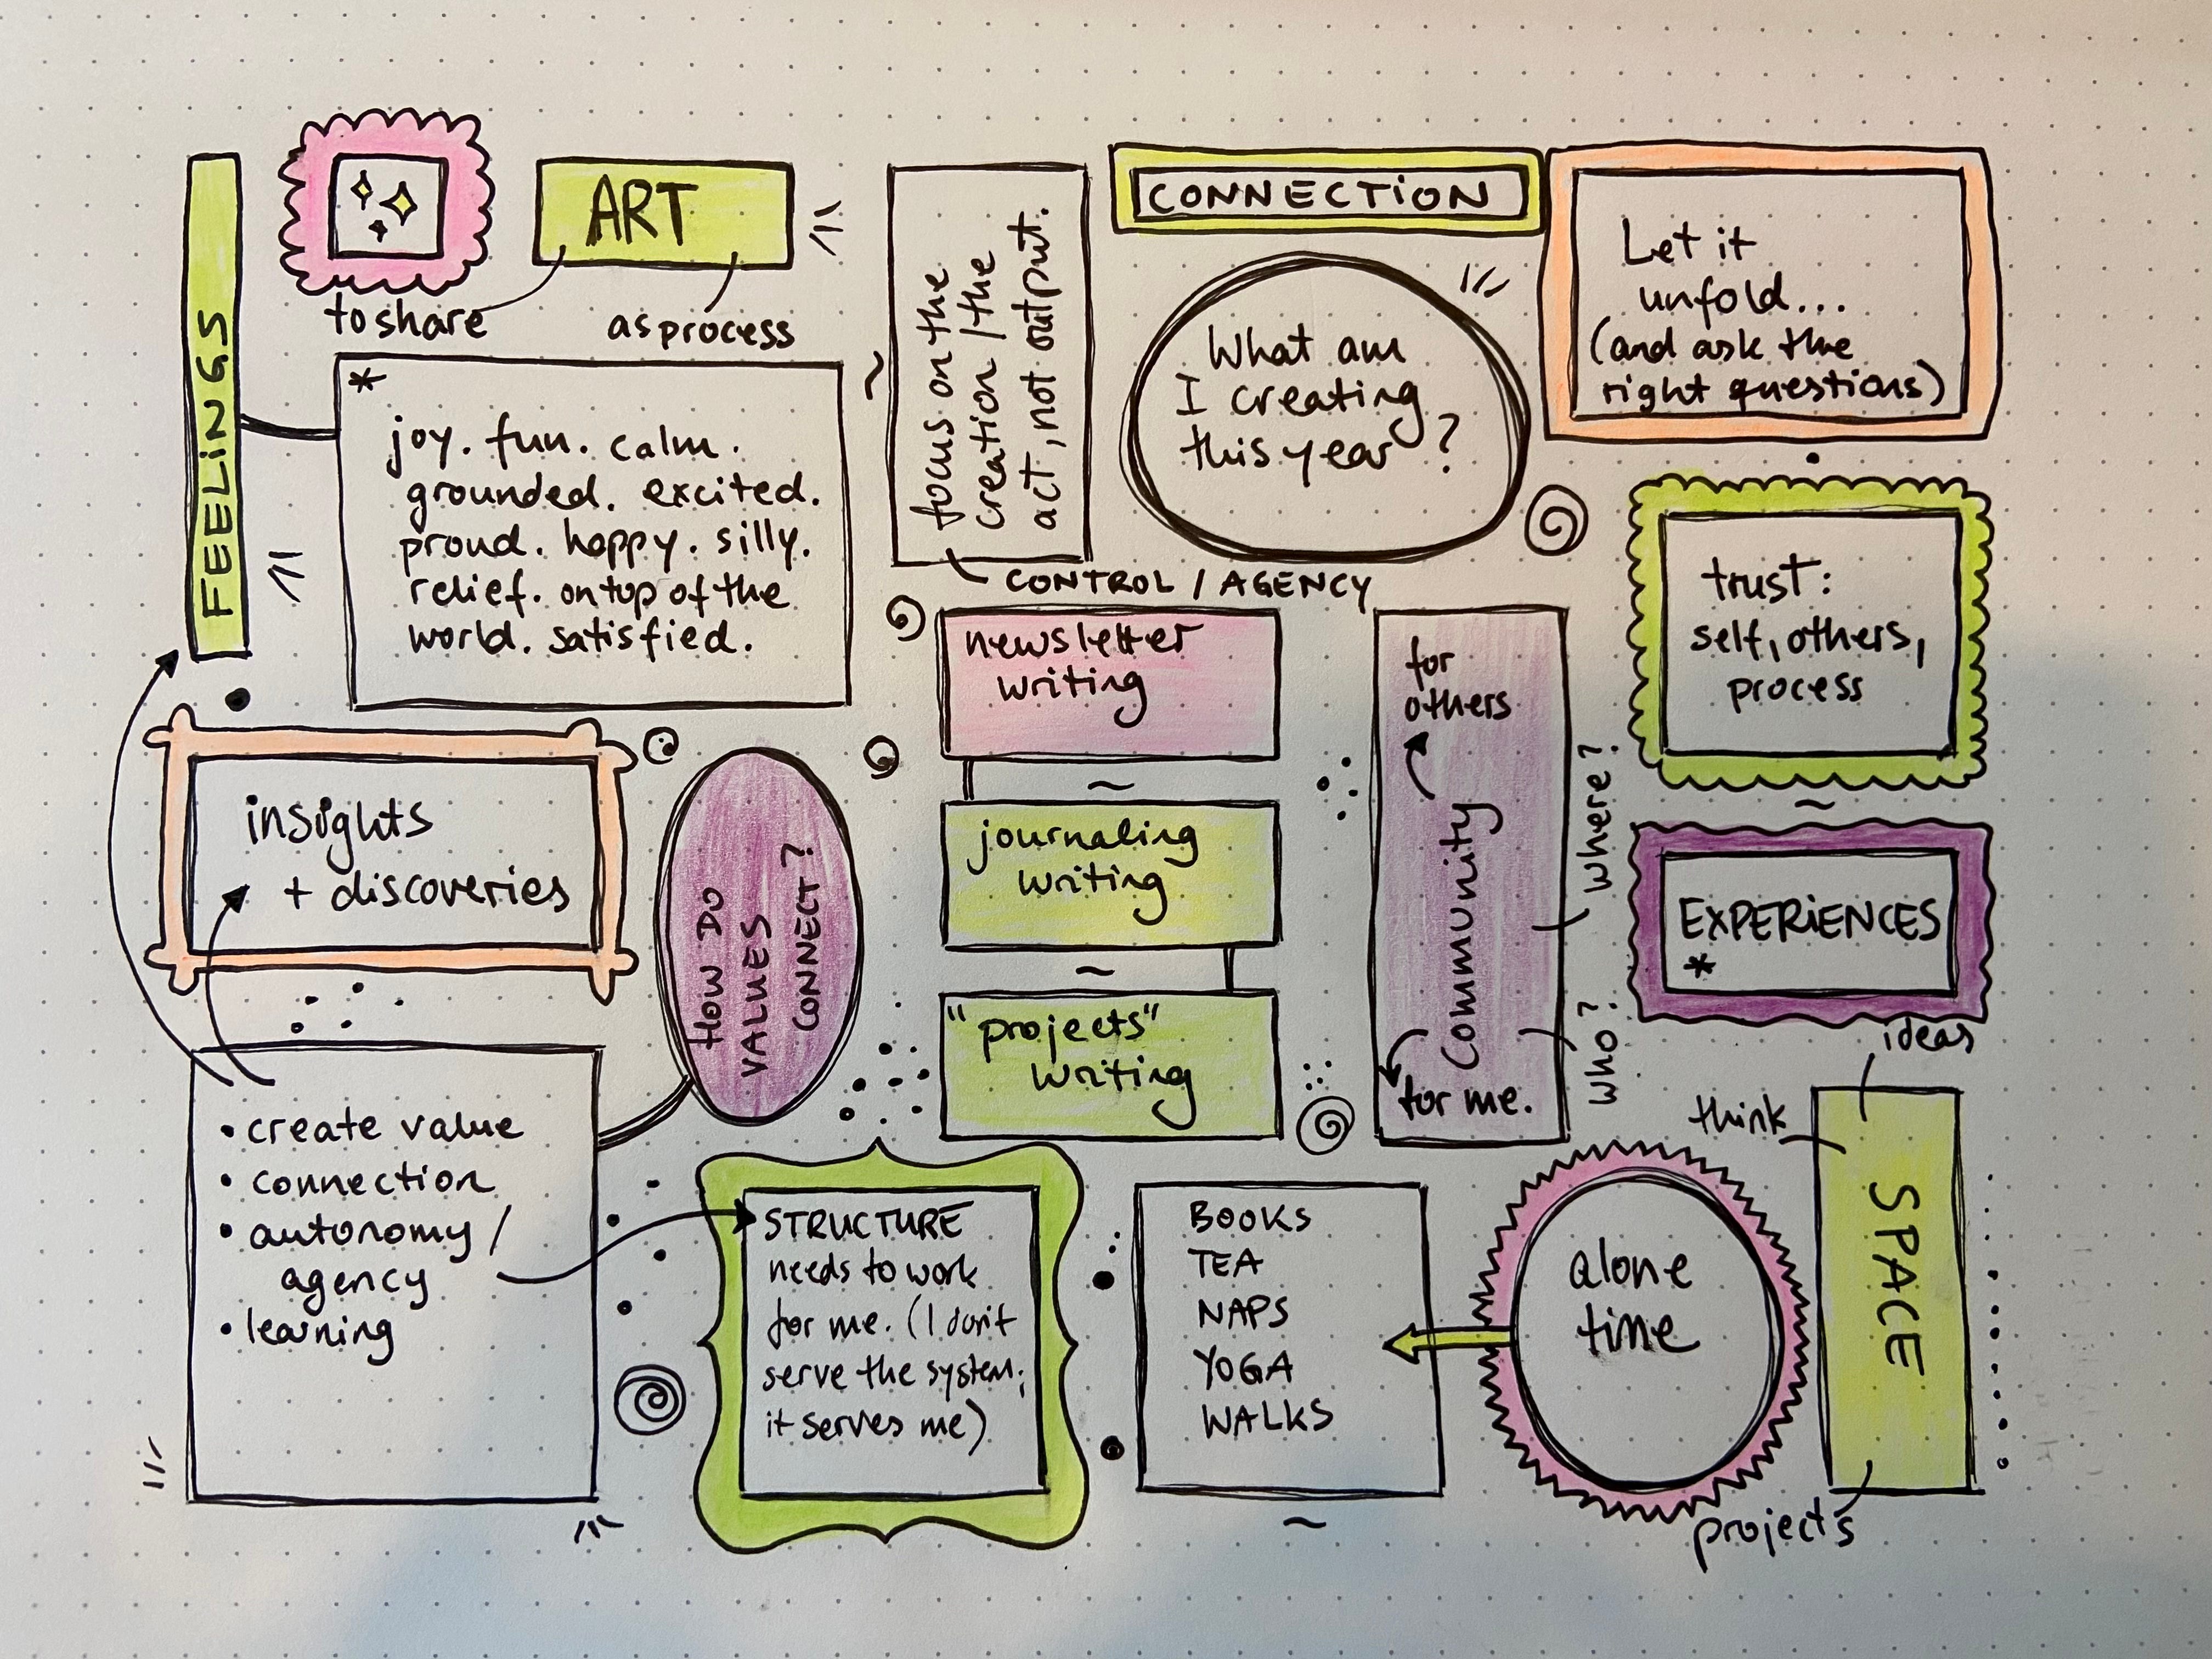 FEELiNGS
ART
to share
as process
*
joy. fun. calm.
grounded. excited.
proud. happy. silly.
relief. on top of the
world. satisfied.
focus on the
creation / the
act, not output.
CONTROL / AGENCY
CONNECTiON
What am
I creating
this year?
Let it
unfold...
(and ask the
right questions)
trust:
self, others,
process
EXPERiENCES
*
insights
+ discoveries
HOW DO
VALUES
CONNECT?
newsletter
writing
journaling
writing
"projects"
writing
for
others
Community
for me.
where?
who?
• create value
• connection
• autonomy /
agency
• learning
STRUCTURE
needs to work
for me. (I don't
serve the system;
it serves me)
BOOKS
TEA
NAPS
YOGA
WALKS
alone
time
ideas
think
SPACE
projects